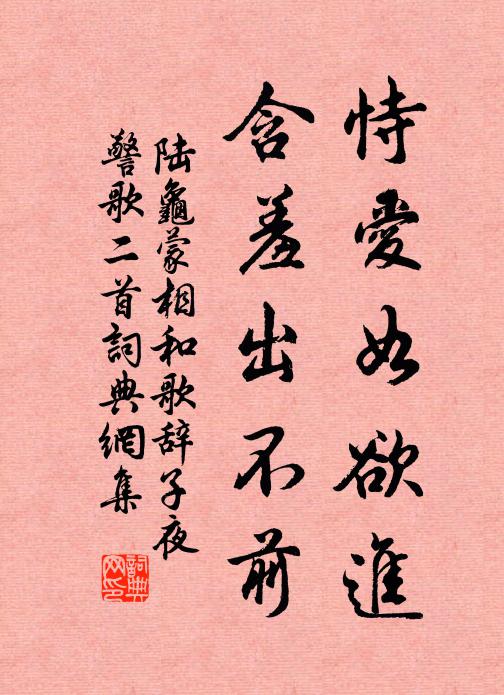 恃愛如欲進
含羞出不前
陆龜蒙相和歌辞子夜
警歌二首詞典網集
詞典
网印